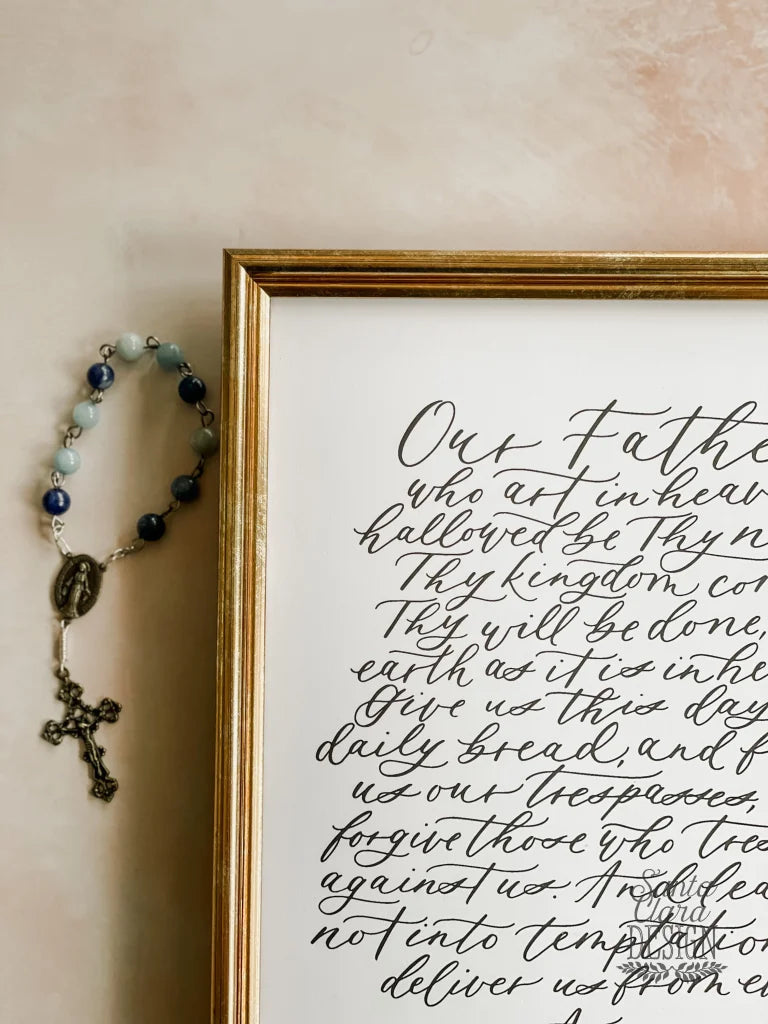 Our Fathe
who art in heav
hallowed be Thy n
Thy kingdom co
Thy will be done,
earth as it is in he
Give us this day
daily bread, and f
us our trespasses,
forgive those who tres
against us. And lea
not into temptation
deliver us from e
A
Santa
Clara
DESIGN